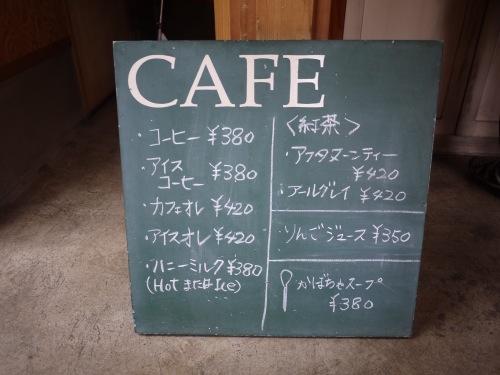 CAFE
・コーヒー ¥380
・アイス
コーヒー ¥380
・カフェオレ ¥420
・アイスオレ ¥420
・ハニーミルク ¥380
(Hot または Ice)
〈紅茶〉
・アフタヌーンティー
¥420
・アールグレイ ¥420
りんごジュース ¥350
かぼちゃスープ
¥380